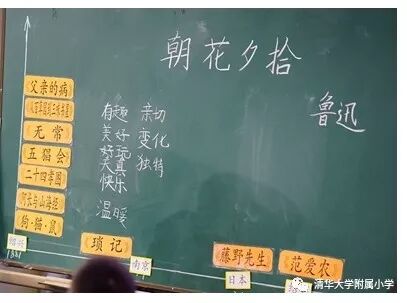 朝花夕拾
鲁迅
父亲的病
从百草园到三味书屋
无常
五猖会
二十四孝图
阿长与山海经
狗·猫·鼠
有趣 亲切
美好 变化
好玩 独特
天真
快乐
温暖
琐记
南京
藤野先生
日本
范爱农
绍兴
1881
清华大学附属小学